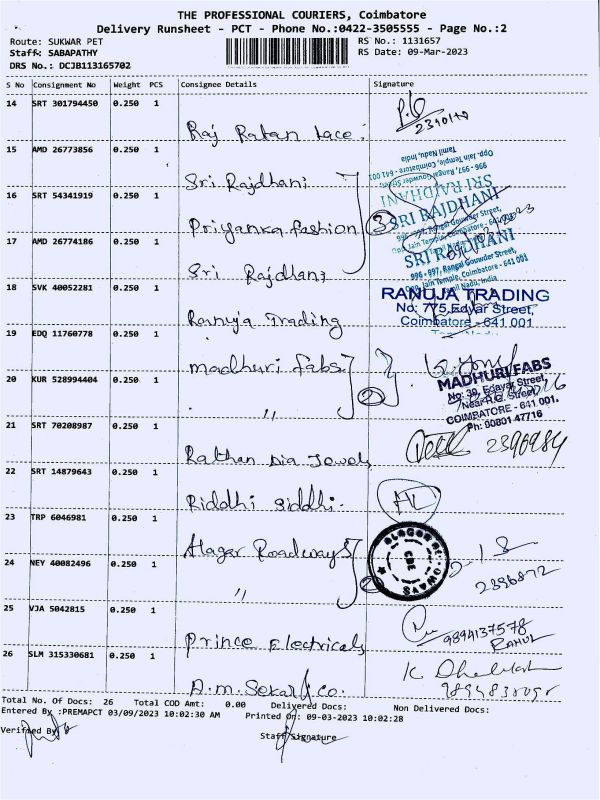 THE PROFESSIONAL COURIERS, Coimbatore
Delivery Runsheet - PCT - Phone No.:0422-3505555 - Page No.:2
Route: SUKWAR PET
RS No.: 1131657
Staff: SABAPATHY
RS Date: 09-Mar-2023
DRS No.: DCJB113165702
S No Consignment No Weight PCS Consignee Details Signature
14 SRT 301794450 0.250 1
Raj Ratan Lace
15 AMD 26773856 0.250 1
Sri Rajdhani
16 SRT 54341919 0.250 1
Priyanka fashion
3
17 AMD 26774186 0.250 1
Sri Rajdhani
SRI RAJDHANI
996 - 997, Rangai Gowder Street,
Opp. Jain Temple, Coimbatore - 641 001
Tamil Nadu, India
SRI RAJDHANI
SRI RAJDHANI
996 - 997, Rangai Gowder Street,
Opp. Jain Temple, Coimbatore - 641 001
Tamil Nadu, India
18 SVK 40052281 0.250 1
Ranuja Trading
RANUJA TRADING
No: 775, Edayar Street,
Coimbatore - 641 001
Tamil Nadu
19 EDQ 11760778 0.250 1
Madhuri fabs
20 KUR 528994404 0.250 1
"
2
MADHURI FABS
No: 39, Edayar Street,
Near R.G. Street,
COIMBATORE - 641 001.
Ph: 90801 47716
21 SRT 70208987 0.250 1
Rathan Dia Jewels
2396984
22 SRT 14879643 0.250 1
Riddhi Siddhi
23 TRP 6046981 0.250 1
Alagar Roadways
24 NEY 40082496 0.250 1
"
2
CBE
2396872
25 VJA 5042815 0.250 1
Prince Electricals
9894137578
RAHUL
26 SLM 315330681 0.250 1
A.M. Sekar & Co.
Total No. Of Docs: 26 Total COD Amt: 0.00 Delivered Docs: Non Delivered Docs:
Entered By :PREMAPCT 03/09/2023 10:02:30 AM Printed On: 09-03-2023 10:02:28
Verified By
Staff Signature